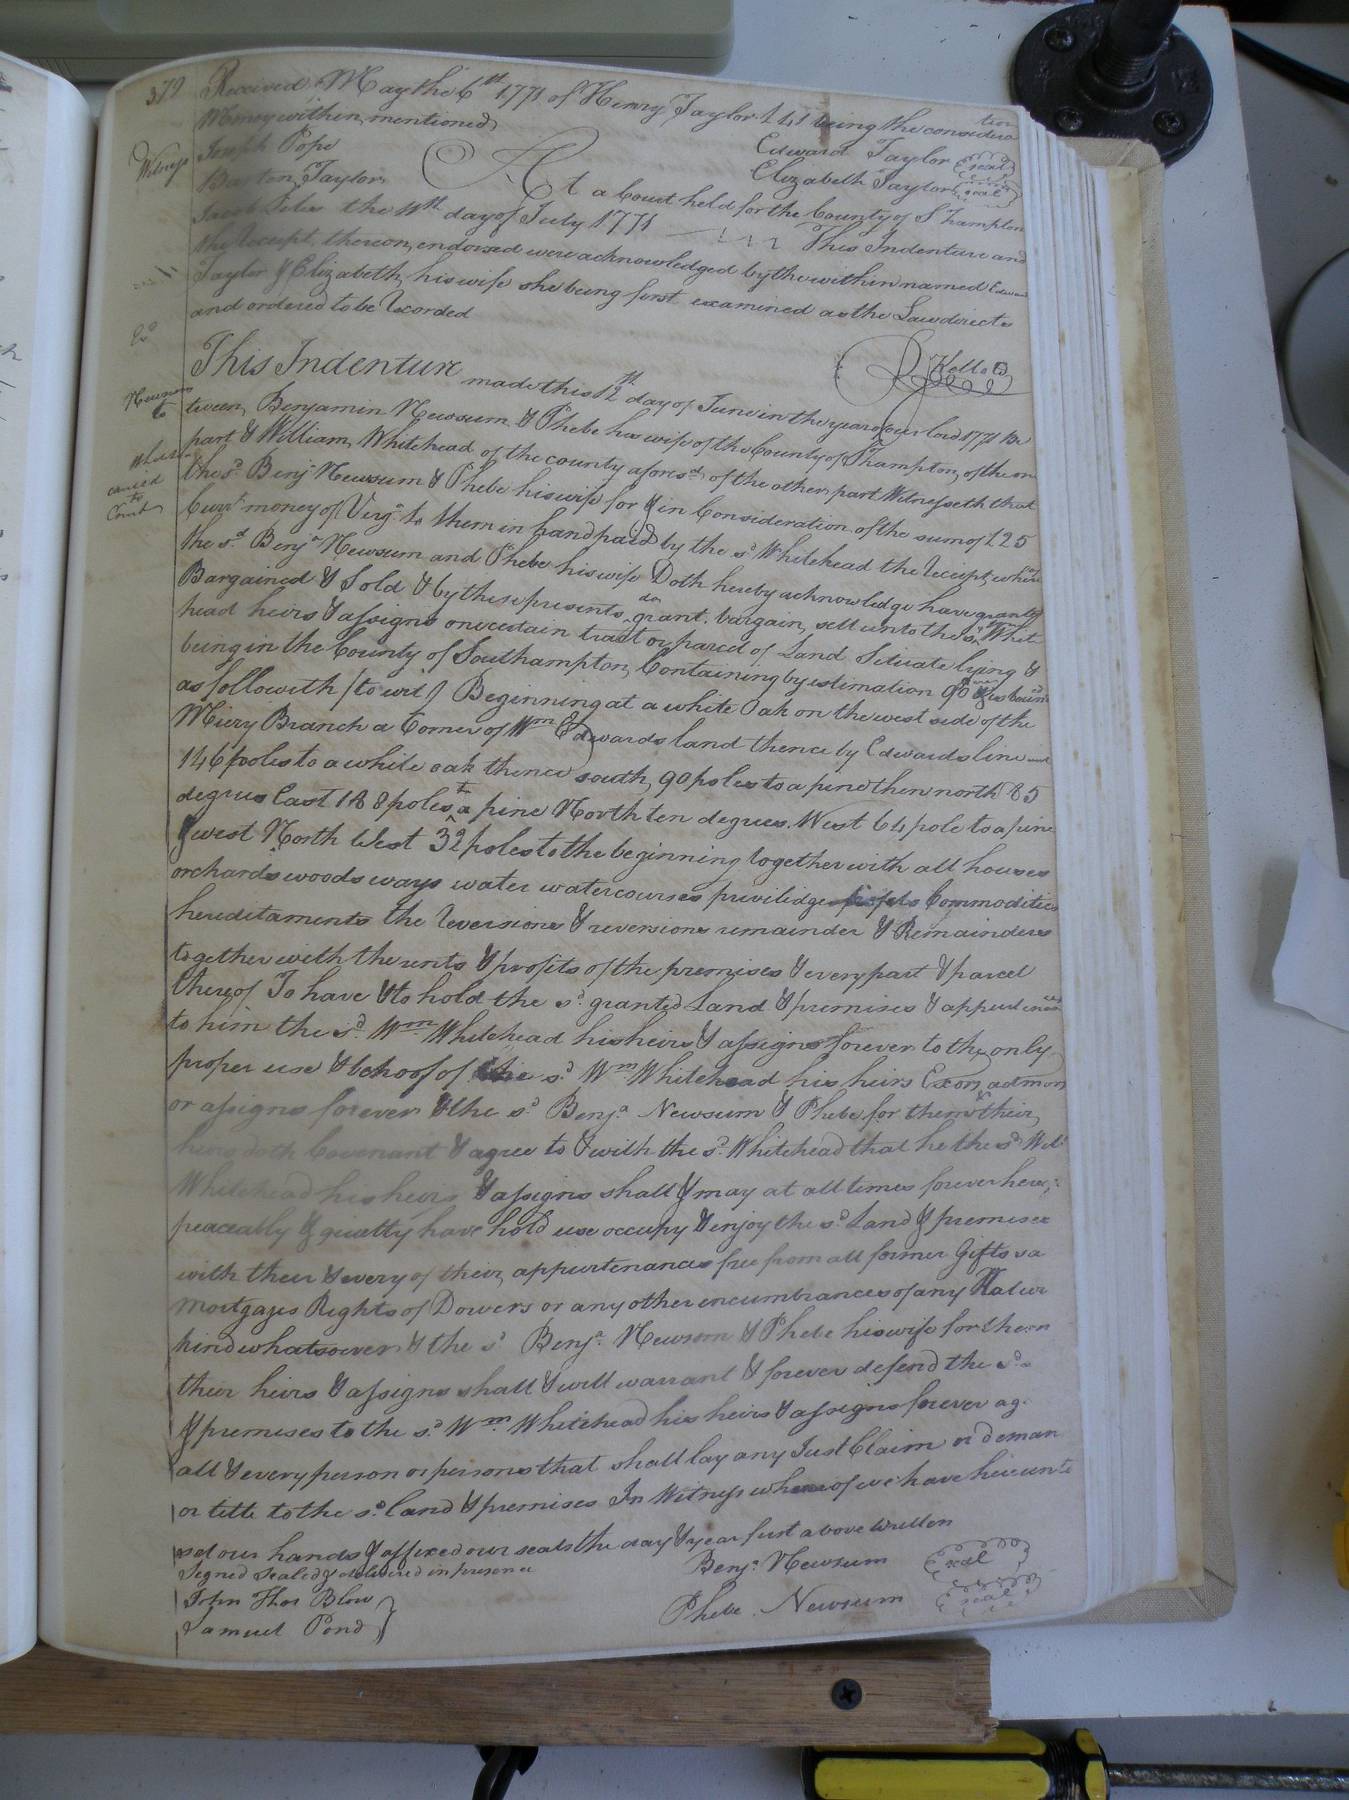 379
Received May the 6th 1771 of Henry Taylor £41 being the considera
tion
Money within mentioned
Edward Taylor seal
Witness Joseph Pope
Elizabeth Taylor seal
Barton Taylor
At a Court held for the County of S'hampton
the 11th day of July 1771 This Indenture and
the receipt thereon endorsed were acknowledged by the within named Edward
Taylor & Elizabeth his wife she being first examined as the Law directs
and ordered to be Recorded
Exd
R Kello
This Indenture made this 12th day of June in the year of our lord 1771 Be
Newsum
to
tween Benjamin Newsum & Phebe his wife of the County of S'hampton of the one
part & William Whitehead of the county aforesd. of the other part Witnesseth that
caried
to
Court
the sd. Benja. Newsum & Phebe his wife for & in Consideration of the sum of £25
Curr. money of Virga. to them in hand paid by the sd. Whitehead the receipt where
the sd. Benja. Newsum and Phebe his wife Doth hereby acknowledge have granted
Bargained & Sold & by these presents do grant, bargain, sell unto the sd. Whit
head heirs & assigns one certain tract or parcel of Land Situate lying &
being in the County of Southampton, Containing by estimation 90 bound
as followith (to wit) Beginning at a white Oak on the west side of the
Miery Branch a Corner of Wm Edwards land thence by Edwards line
146 poles to a white oak thence south, 90 poles to a pine then north 85
degrees East 188 poles to a pine North ten degrees West 64 pole to a pine
& west North West 32 poles to the beginning together with all houses
orchards woods ways water watercourses priviledges Commodities
hereditaments the Reversions & reversions remainder & Remainders
together with the rents & profits of the premises & every part & parcel
thereof To have & to hold the sd. granted Land & premises & appurtenances
to him the sd. Wm. Whitehead his heirs & assigns forever to the only
proper use & behoof of the sd. Wm. Whitehead his heirs Exors, admors
or assigns forever & the sd. Benja. Newsum & Phebe for them & their
heirs doth Covenant & agree to & with the sd. Whitehead that he the sd. Will
Whitehead his heirs & assigns shall & may at all times forever here
peaceably & quietly have hold use occupy & enjoy the sd. Land & premises
with their & every of their appurtenances free from all former Gifts
Mortgages Rights of Dowers or any other incumbrances of any
kind whatsoever & the sd Benja. Newsom & Phebe his wife for them
their heirs & assigns shall & will warrant & forever defend the sd.
& premises to the sd. Wm. Whitehead his heirs & assigns forever ag.
all & every person or persons that shall lay any Just Claim or deman
or title to the sd. land & premises In Witness whereof we have hereunto
set our hands & affixed our seals the day & year first above written
Signed Sealed & delivered in presence
Benja. Newsum seal
John Thos Blow
Phebe Newsum seal
Samuel Pond